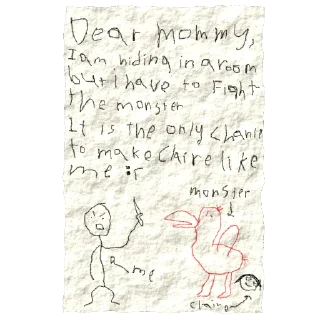 Dear mommy,
I am hiding in a room
but I have to Fight
the monster
It is the only chance
to make Claire like
me :r
monster
me
claire